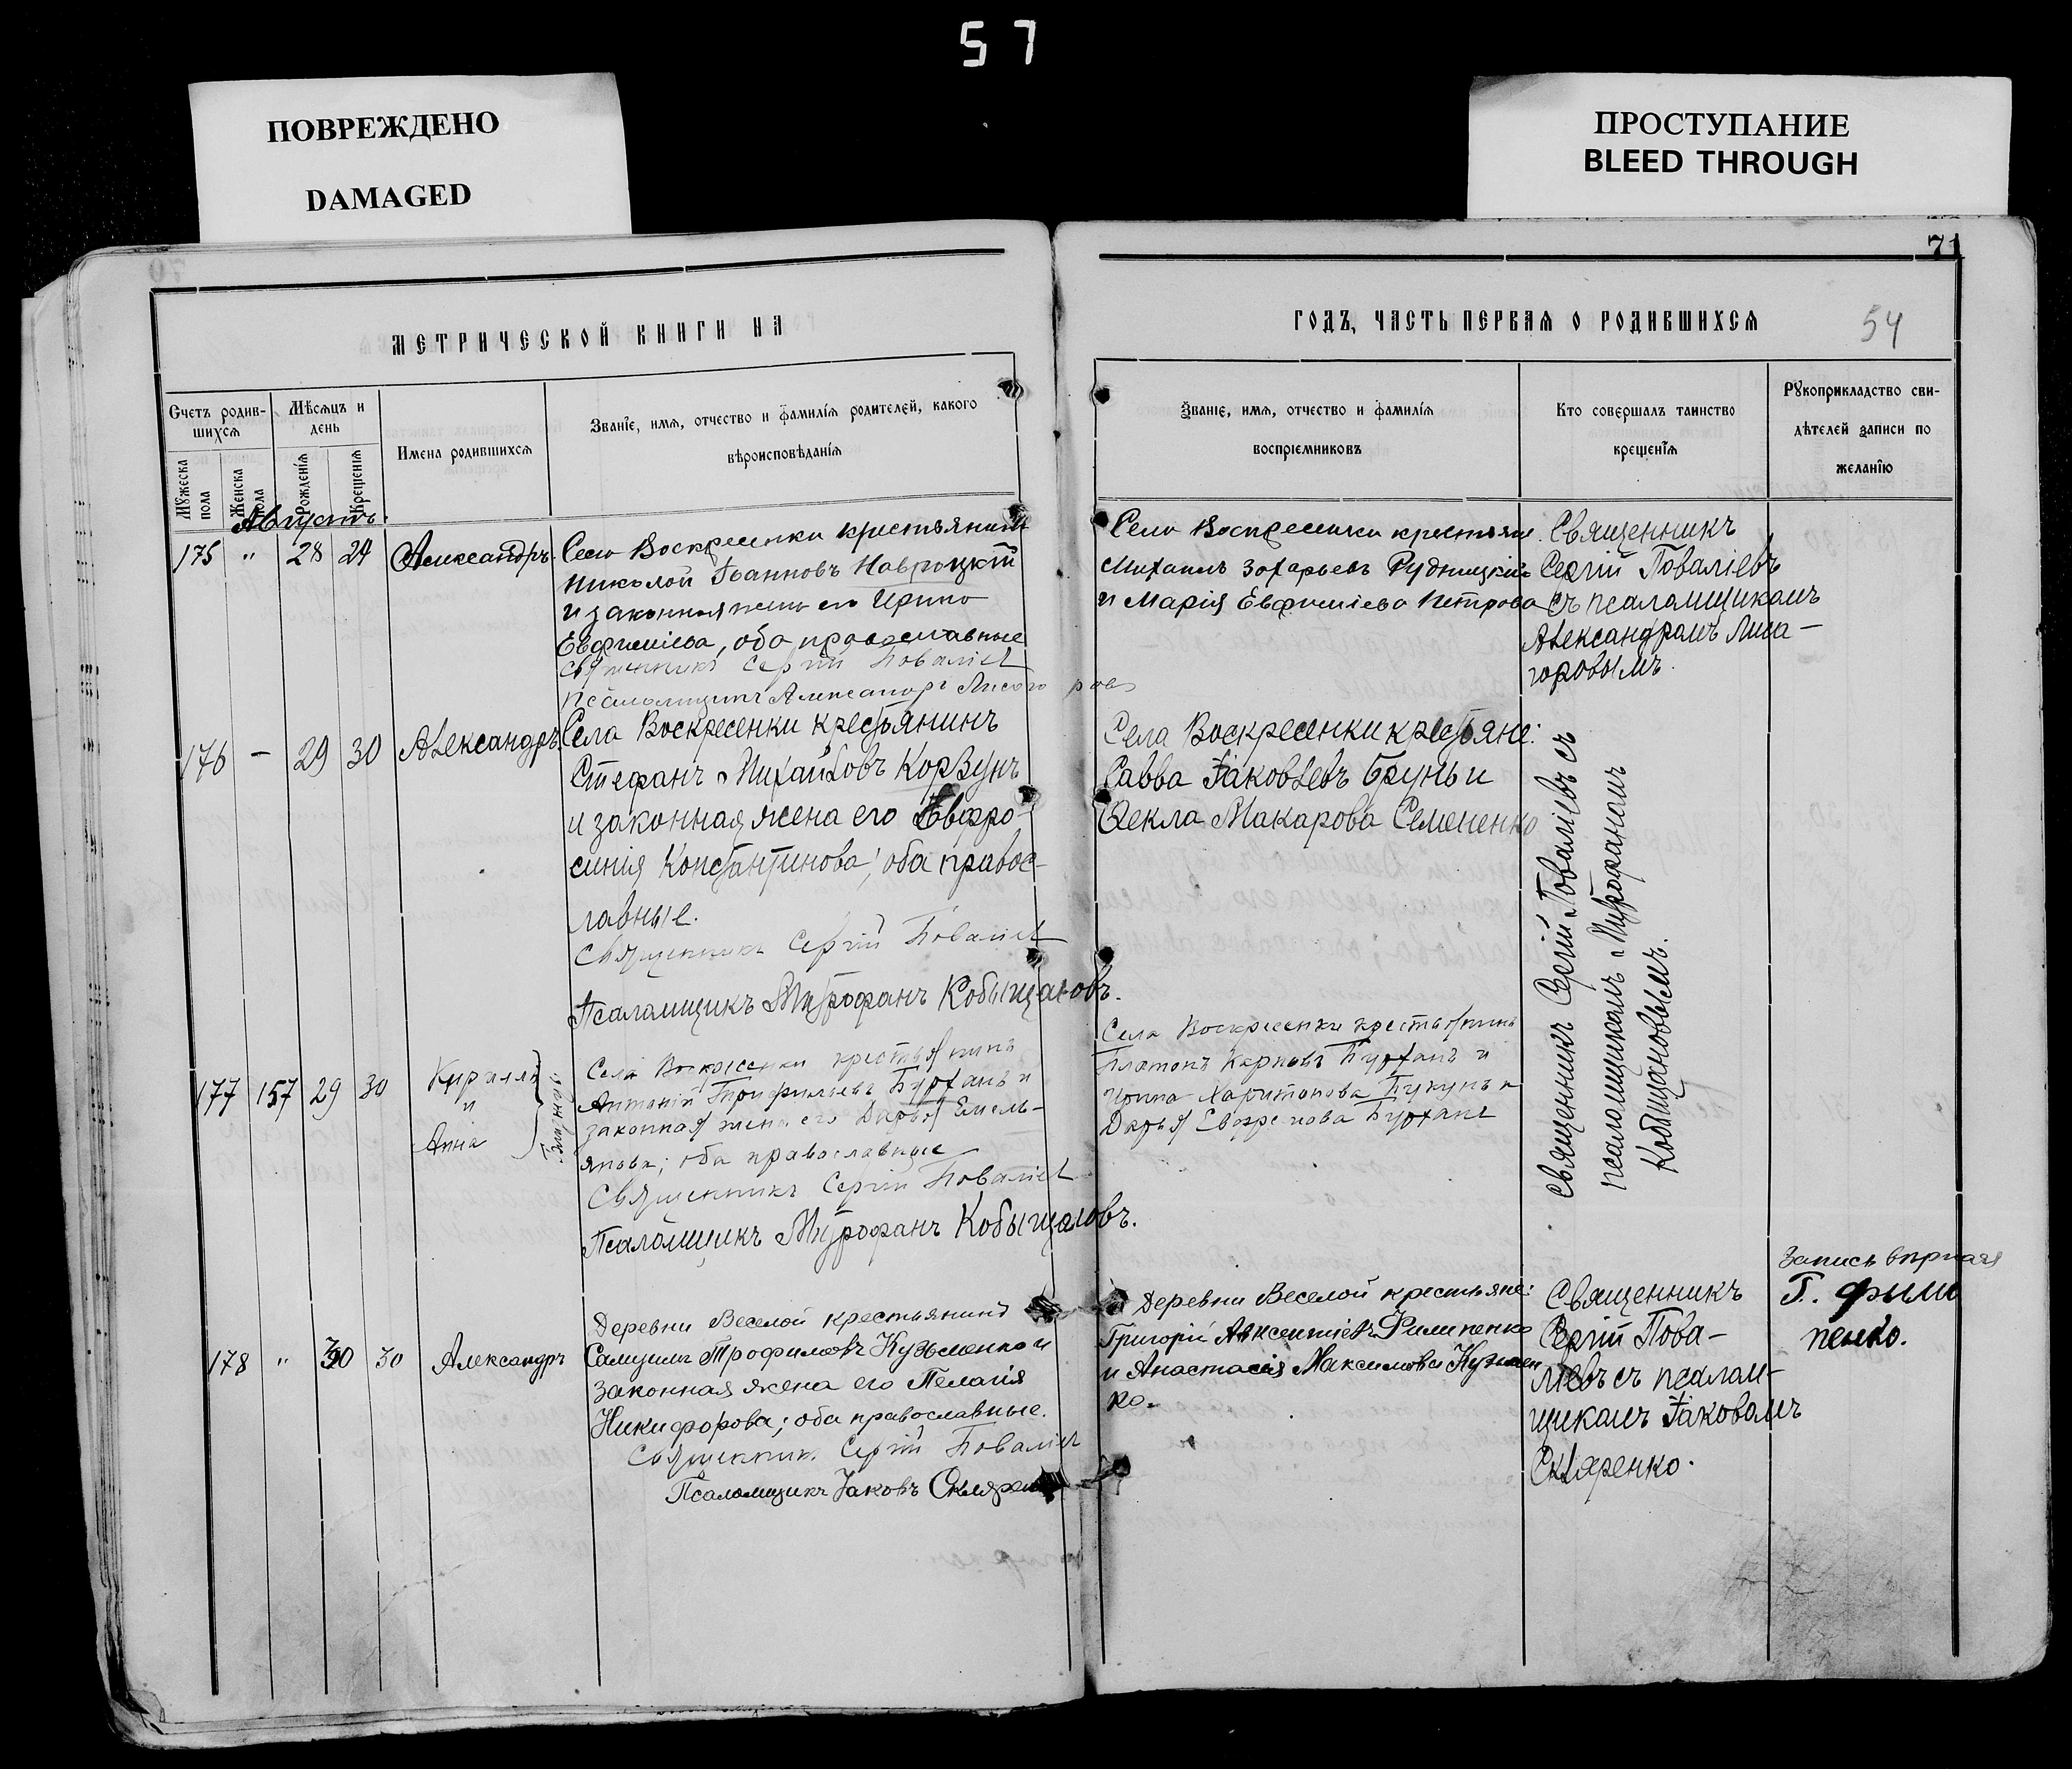 57
ПОВРЕЖДЕНО
DAMAGED
ПРОСТУПАНИЕ
BLEED THROUGH
71
МЕТРИЧЕСКОЙ КНИГИ НА
ГОДЪ, ЧАСТЬ ПЕРВАЯ О РОДИВШИХСЯ
54
Счетъ родив-
шихся
Мужеска пола
Женска пола
Мѣсяцъ и
день
Рожденія
Крещенія
Имена родившихся
Званіе, имя, отчество и фамилія родителей, какого
вѣроисповѣданія
Званіе, имя, отчество и фамилія
воспріемниковъ
Кто совершалъ таинство
крещенія
Рукоприкладство сви-
дѣтелей записи по
желанію
Августъ
175 " 28 29 Александръ
Села Воскресенки крестьянинъ
Николай Іоанновъ Навроцкій
и законная жена его Ирина
Евфиміева, оба православные
Священникъ Сергій Поваліевъ
Псаломщикъ Александръ Лисогоровъ
Села Воскресенки крестьяне
Михаилъ Захарьевъ Рудницкій
и Марія Евфиміева Петрова
Священникъ
Сергій Поваліевъ
съ псаломщикомъ
Александромъ Лиса-
горовымъ.
176 — 29 30 Александръ
Села Воскресенки крестьянинъ
Стефанъ Михайловъ Корзунъ
и законная жена его Евфро-
синія Константинова; оба правос-
лавные.
Священникъ Сергій Поваліевъ
Псаломщикъ Митрофанъ Кобыщановъ.
Села Воскресенки крестьяне:
Савва Іаковлевъ Брунь и
Ѳекла Макарова Семененко
Священникъ Сергій Поваліевъ съ
псаломщикомъ Митрофаномъ
Кобыщановымъ.
177 157 29 30 Кириллъ
и
Анна
близнецы
Села Воскресенки крестьянинъ
Антоній Трифильевъ Бурханъ и
законная жена его Дарья Емель-
янова; оба православные
Священникъ Сергій Поваліевъ
Псаломщикъ Митрофанъ Кобыщановъ.
Села Воскресенки крестьянинъ
Платонъ Карповъ Бурханъ и
Харитонова
Дарья Евфремова Бурханъ
178 " 30 30 Александръ
Деревни Веселой крестьянинъ
Самуилъ Трофимовъ Кузьменко и
законная жена его Пелагія
Никифорова; оба православные.
Священникъ Сергій Поваліевъ
Псаломщикъ Іаковъ Скляренко
Деревни Веселой крестьяне:
Григорій Авксентіевъ Филипенко
и Анастасія Максимова Кузьмен
ко.
Священникъ
Сергій Пова-
ліевъ съ псалом-
щикомъ Іаковомъ
Скляренко.
Запись вѣрная
Г. Фили
пенко.